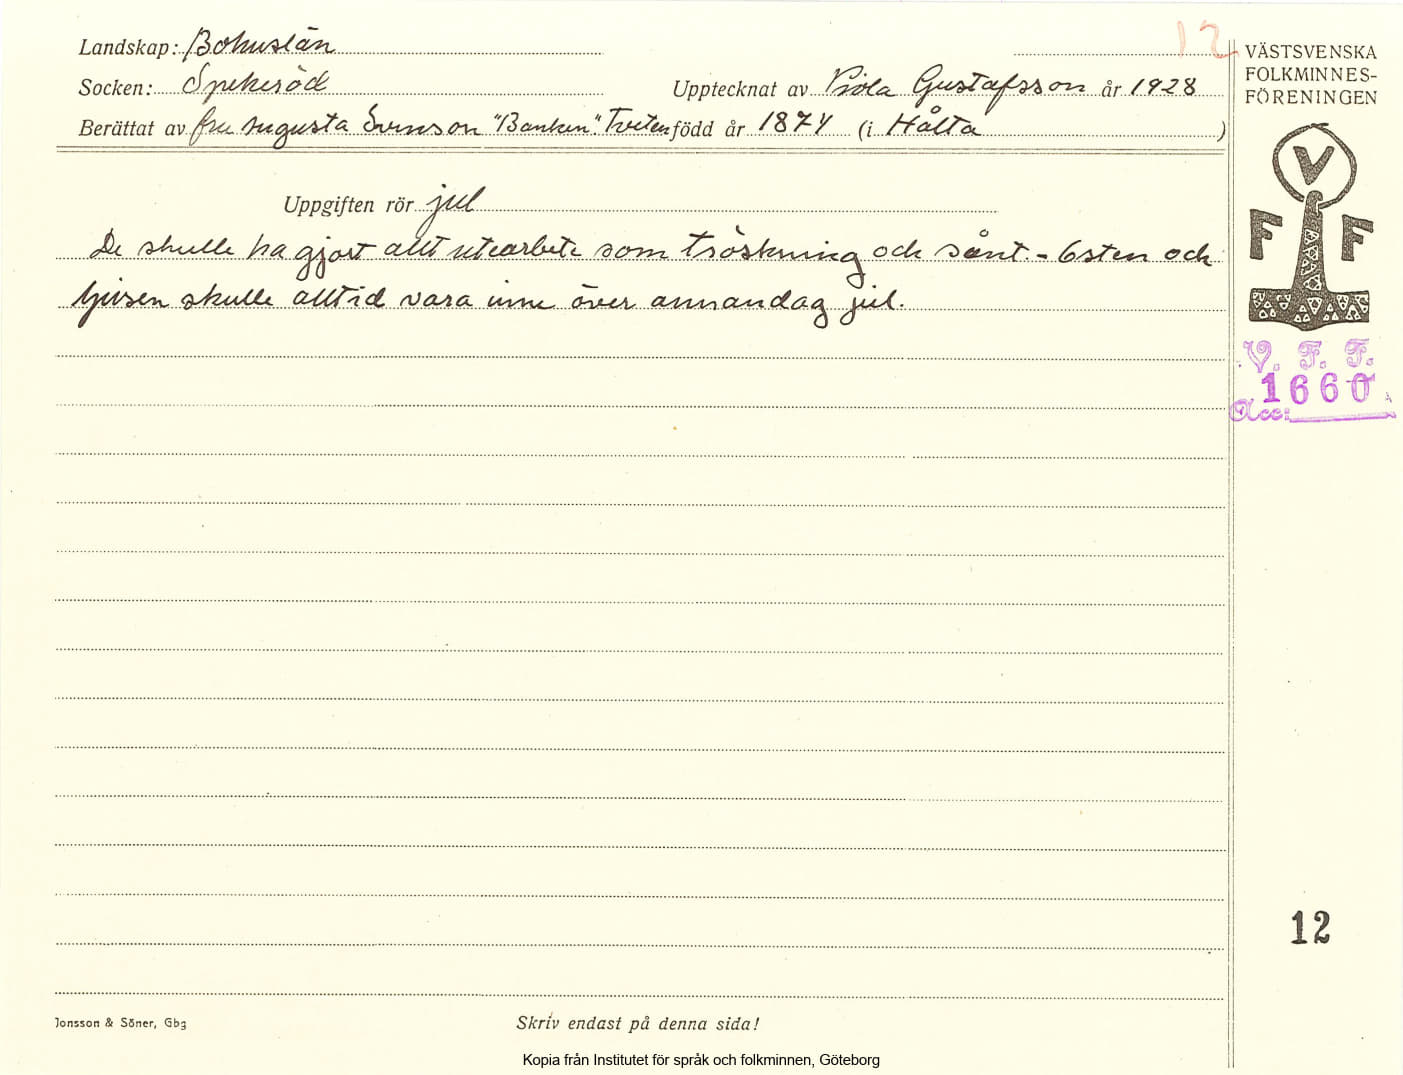 12
Landskap: Bohuslän
VÄSTSVENSKA
FOLKMINNES-
FÖRENINGEN
Socken: Spekeröd Upptecknat av Viola Gustafsson år 1928
Berättat av fru Augusta Svenson "Banken". Tveten född år 1874 (i Hålta)
V
F F
Uppgiften rör jul
De skulle ha gjort allt utearbete som tröskning och sånt. - Osten och
ljusen skulle alltid vara inne över annandag jul.
V. F. F.
1660
Acc:
12
Jonsson & Söner, Gbg
Skriv endast på denna sida!
Kopia från Institutet för språk och folkminnen, Göteborg